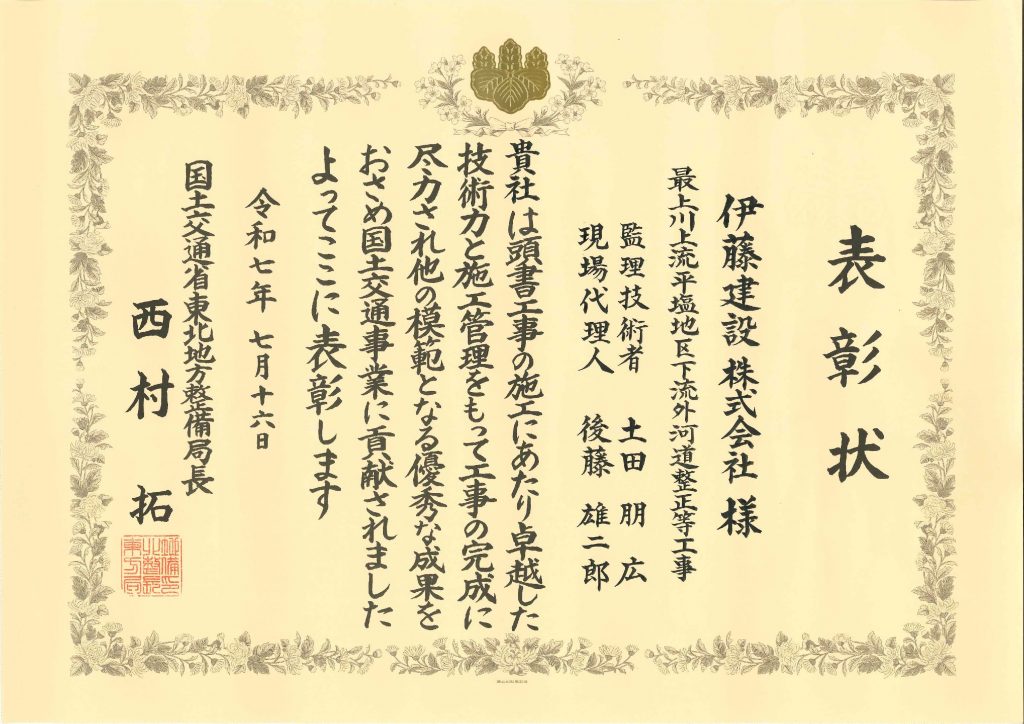 表彰状
伊藤建設株式会社様
最上川上流平塩地区下流外河道整正等工事
監理技術者 土田朋広
現場代理人 後藤雄二郎
貴社は頭書工事の施工にあたり卓越した
技術力と施工管理をもって工事の完成に
尽力され他の模範となる優秀な成果を
おさめ国土交通事業に貢献されました
よってここに表彰します
令和七年七月十六日
国土交通省東北地方整備局長
西村拓